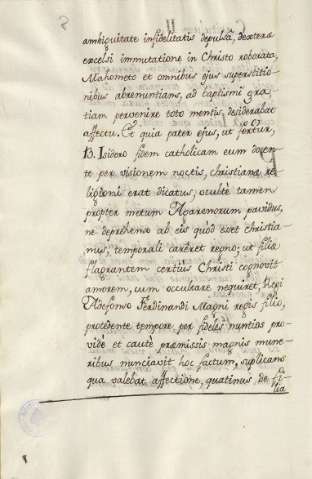 ambiguitate infidelitatis depulsâ, dextera
excelsi immutatione in Christo roborata,
Mahometo et omnibus ejus superstitio-
nibus abrenuntians, ad baptismi gra-
tiam pervenire toto mentis, desiderabat
affectu. Et quia pater ejus, ut fertur,
B. Isidero fidem catholicam eum docen-
te per visionem noctis, christianæ re-
ligioni erat dicatus, occultè tamen
propter metum Agarenorum pavidus,
ne deprehenso ab eis quod esset christia-
nus, temporali careret regno; ut filiæ
flagrantem certius Christi cognovit
amorem, cum occultare nequiret, Regi
Adefonso Ferdinandi Magni regis filio,
procedente tempore, per fideles nuntios pro-
vidè et cautè præmissis magnis mune-
ribus nunciavit hoc factum, suplicans
qua valebat affectione, quatinus de fi-
lia